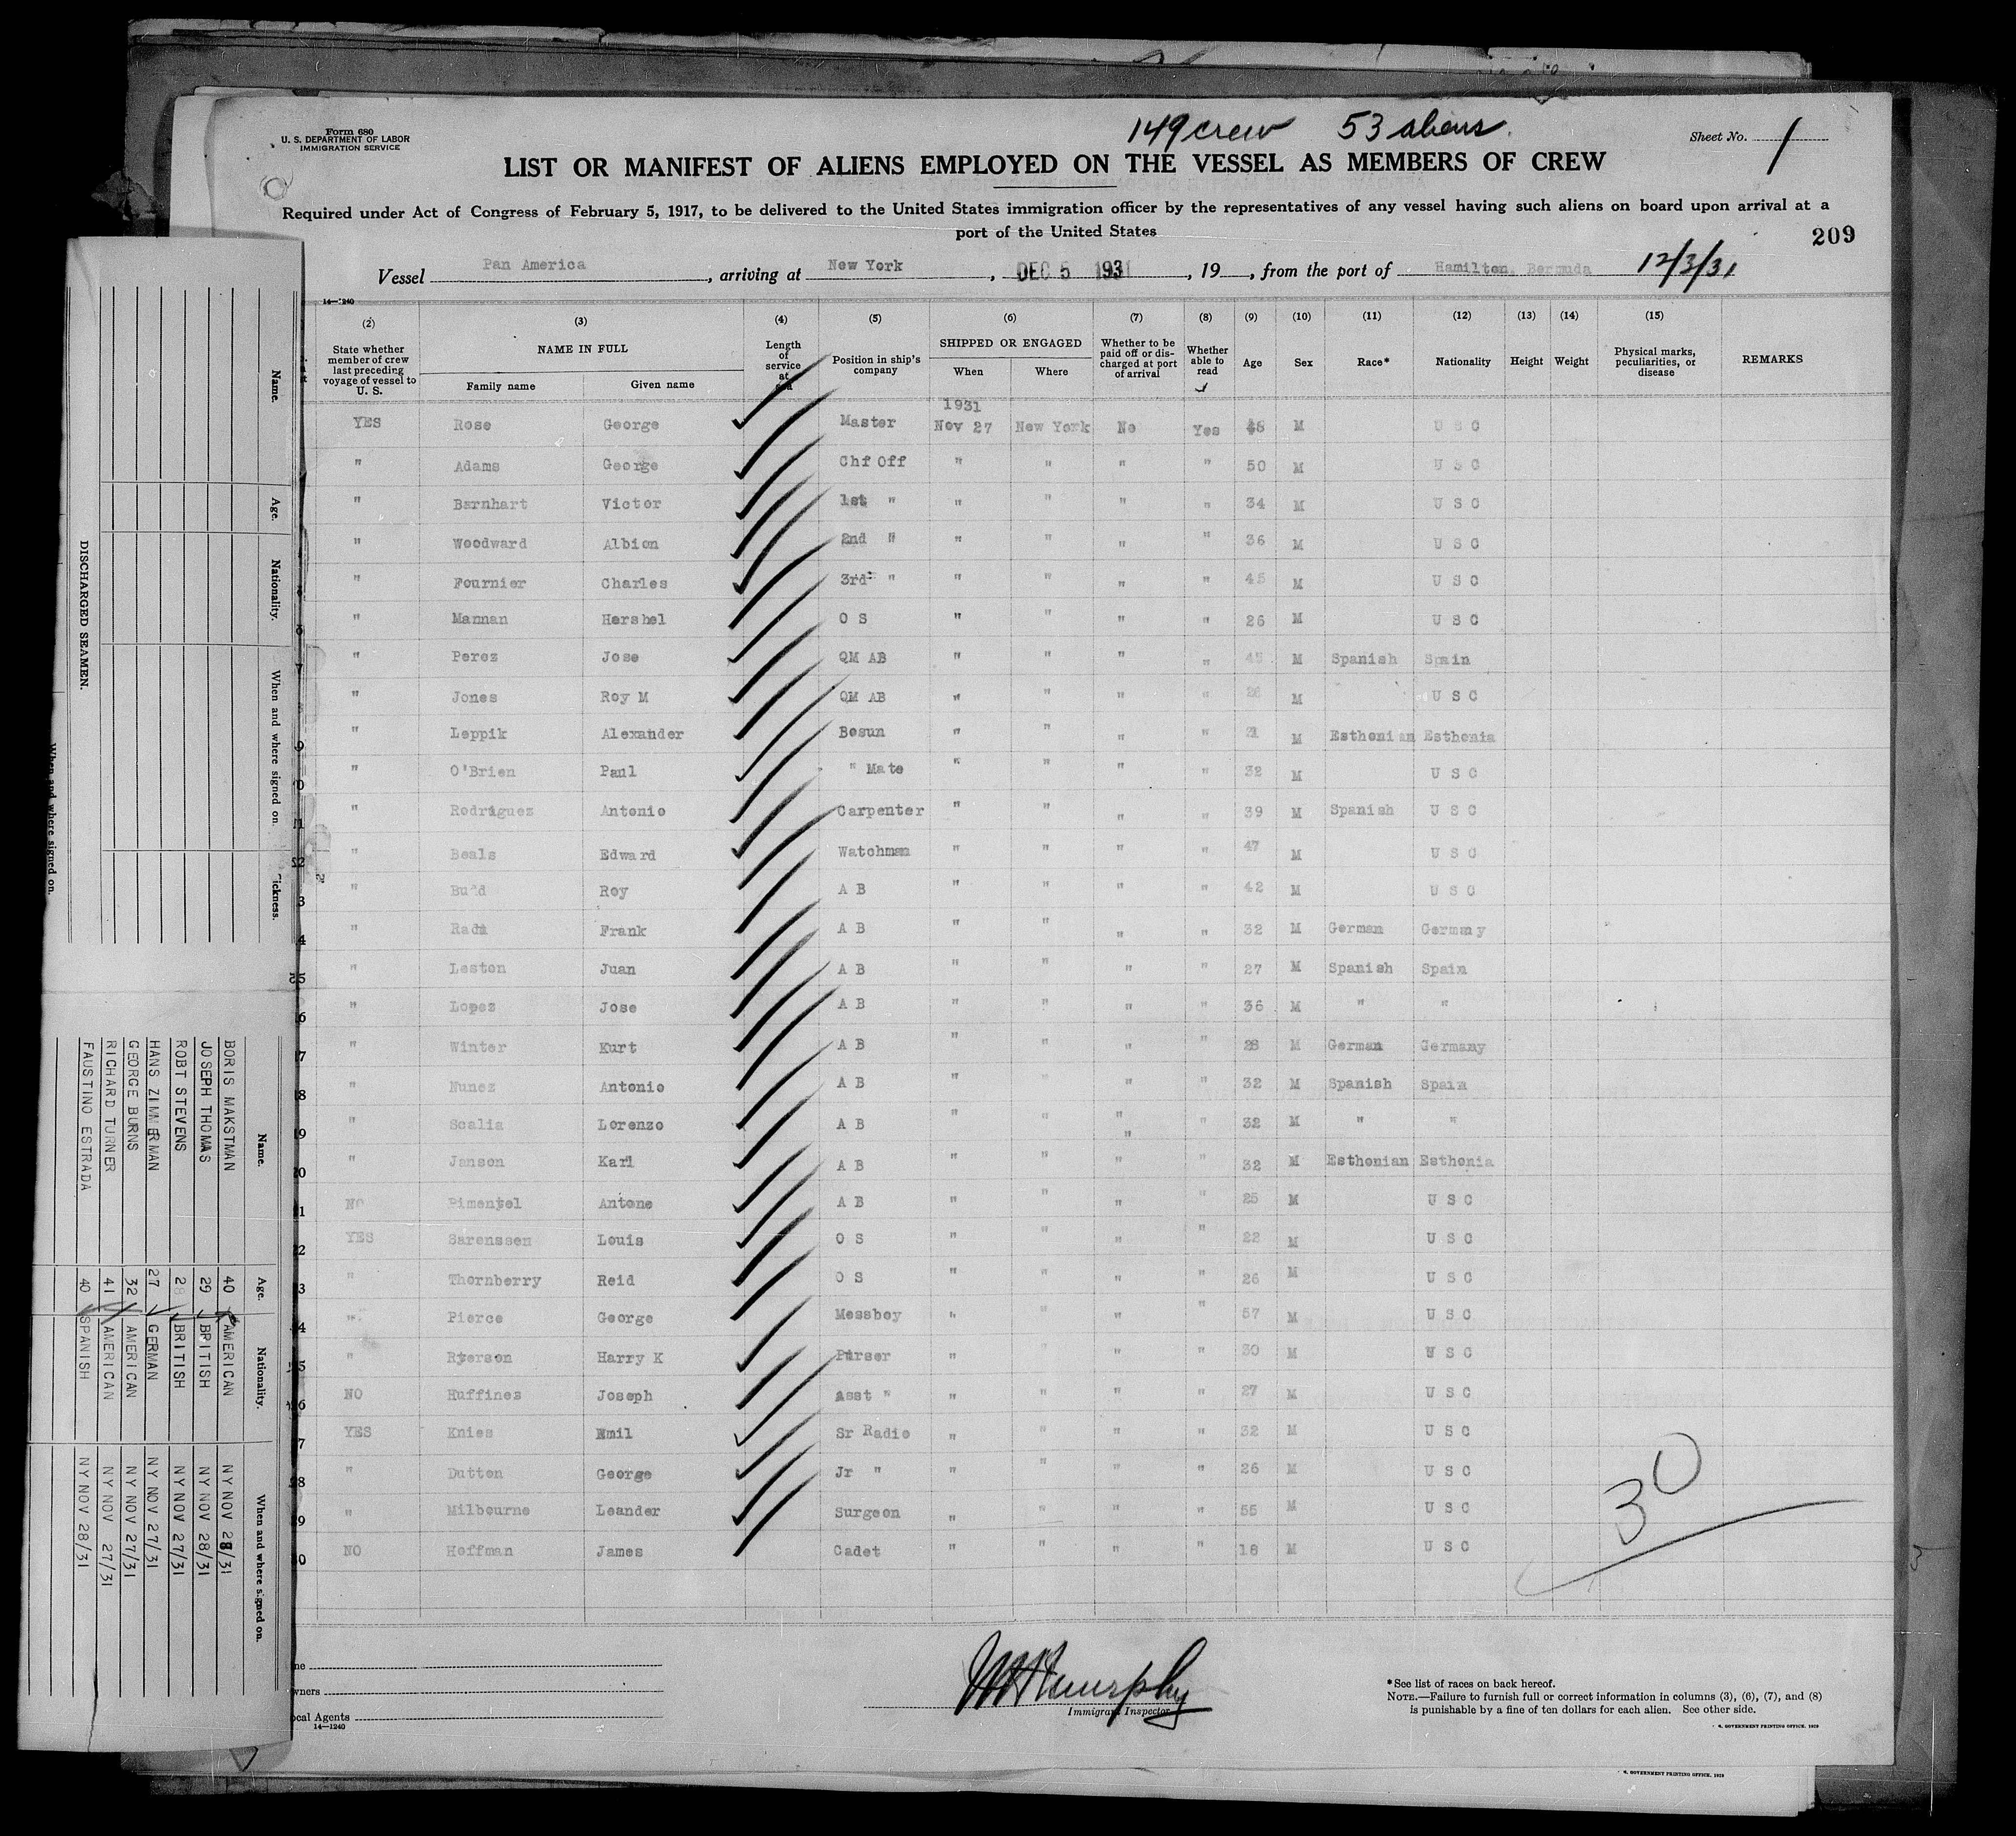 149 crew 53 aliens
Form 680
U. S. DEPARTMENT OF LABOR
IMMIGRATION SERVICE
Sheet No. 1
LIST OR MANIFEST OF ALIENS EMPLOYED ON THE VESSEL AS MEMBERS OF CREW
Required under Act of Congress of February 5, 1917, to be delivered to the United States immigration officer by the representatives of any vessel having such aliens on board upon arrival at a
port of the United States
209
Vessel Pan America, arriving at New York, DEC 5 1931, 19, from the port of Hamilton, Bermuda 12/3/31
14—1240
(2) (3) (4) (5) (6) (7) (8) (9) (10) (11) (12) (13) (14) (15)
State whether member of crew last preceding voyage of vessel to U. S. NAME IN FULL Family name Given name Length of service at Position in ship's company SHIPPED OR ENGAGED When Where Whether to be paid off or discharged at port of arrival Whether able to read Age Sex Race* Nationality Height Weight Physical marks, peculiarities, or disease REMARKS
1931
YES Rose George Master Nov 27 New York No Yes 48 M U S C
" Adams George Chf Off " " " " 50 M U S C
" Barnhart Victor 1st " " " " " 34 M U S C
" Woodward Albion 2nd " " " " " 36 M U S C
" Fournier Charles 3rd " " " " " 45 M U S C
" Mannan Hershel O S " " " " 26 M U S C
7 " Perez Jose QM AB " " " " 45 M Spanish Spain
" Jones Roy M QM AB " " " " M U S C
9 " Leppik Alexander Bosun " " " " M Esthonian Esthonia
0 " O'Brien Paul " Mate " " " " 32 M U S C
1 " Rodriguez Antonio Carpenter " " " " 39 M Spanish U S C
2 " Beals Edward Watchman " " " " 47 M U S C
3 " Budd Roy A B " " " " 42 M U S C
4 " Frank A B " " " " 32 M German Germany
5 " Leston Juan A B " " " " 27 M Spanish Spain
6 " Lopez Jose A B " " " " 36 M " "
7 " Winter Kurt A B " " " " 28 M German Germany
8 " Nunez Antonio A B " " " " 32 M Spanish Spain
9 " Scalia Lorenzo A B " " " " 32 M " "
20 " Janson Karl A B " " " " 32 M Esthonian Esthonia
1 NO Pimentel Antone A B " " " " 25 M U S C
2 YES Sarenssen Louis O S " " " " 22 M U S C
3 " Thornberry Reid O S " " " " 26 M U S C
4 " Pierce George Messboy " " " " 57 M U S C
5 " Ryerson Harry K Purser " " " " 30 M U S C
6 NO Huffines Joseph Asst " " " " " 27 M U S C
7 YES Knies Emil Sr Radio " " " " 32 M U S C
8 " Dutton George Jr " " " " " 26 M U S C
9 " Milbourne Leander Surgeon " " " " 55 M U S C
0 NO Hoffman James Cadet " " " " 18 M U S C
30
wners
ocal Agents
14—1240
Immigrant Inspector
*See list of races on back hereof.
NOTE.—Failure to furnish full or correct information in columns (3), (6), (7), and (8)
is punishable by a fine of ten dollars for each alien. See other side.
GOVERNMENT PRINTING OFFICE. 1929
GOVERNMENT PRINTING OFFICE. 1929
Name. Age. Nationality. When and where signed on. ickness.
DISCHARGED SEAMEN.
When and where signed on.
Name. Age. Nationality. When and where signed on.
BORIS MAKSTMAN 40 AMERICAN NY NOV 28/31
JOSEPH THOMAS 29 BRITISH NY NOV 28/31
ROBT STEVENS 28 BRITISH NY NOV 27/31
HANS ZIMMERMAN 27 GERMAN NY NOV 27/31
GEORGE BURNS 32 AMERICAN NY NOV 27/31
RICHARD TURNER 41 AMERICAN NY NOV 27/31
FAUSTINO ESTRADA 40 SPANISH NY NOV 28/31